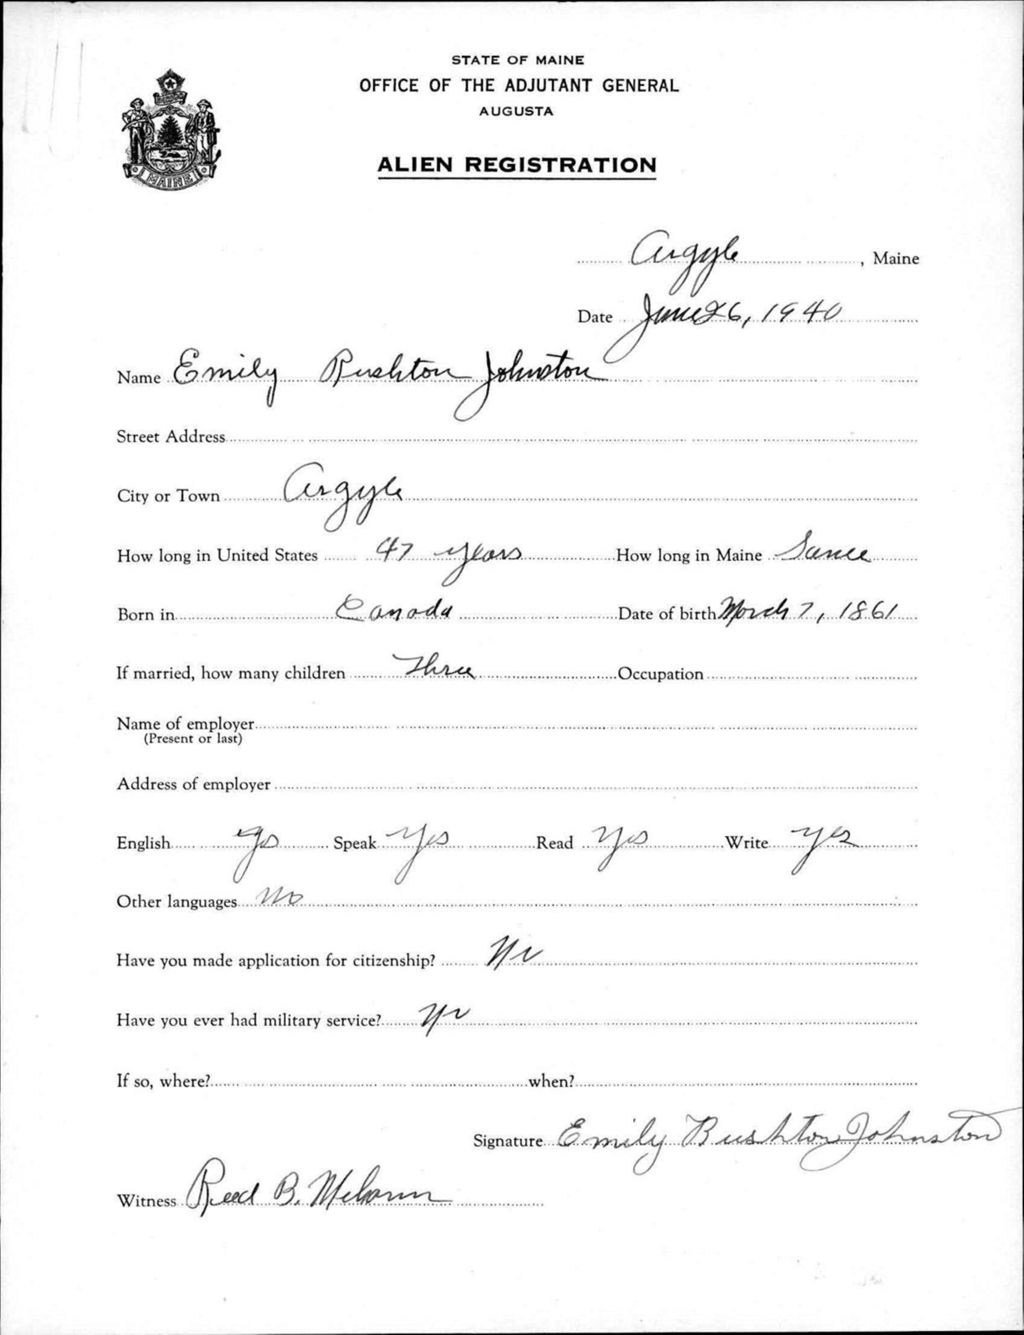 STATE OF MAINE
OFFICE OF THE ADJUTANT GENERAL
AUGUSTA
MAINE
ALIEN REGISTRATION
Argyle, Maine
Date June 26, 1940
Name Emily Rushton Johnston
Street Address
City or Town Argyle
How long in United States 47 years How long in Maine Same
Born in Canada Date of birth March 7, 1861
If married, how many children Three Occupation
Name of employer
(Present or last)
Address of employer
English Yes Speak Yes Read Yes Write Yes
Other languages No
Have you made application for citizenship? No
Have you ever had military service? No
If so, where? when?
Signature Emily Rushton Johnston
Witness Reed B.